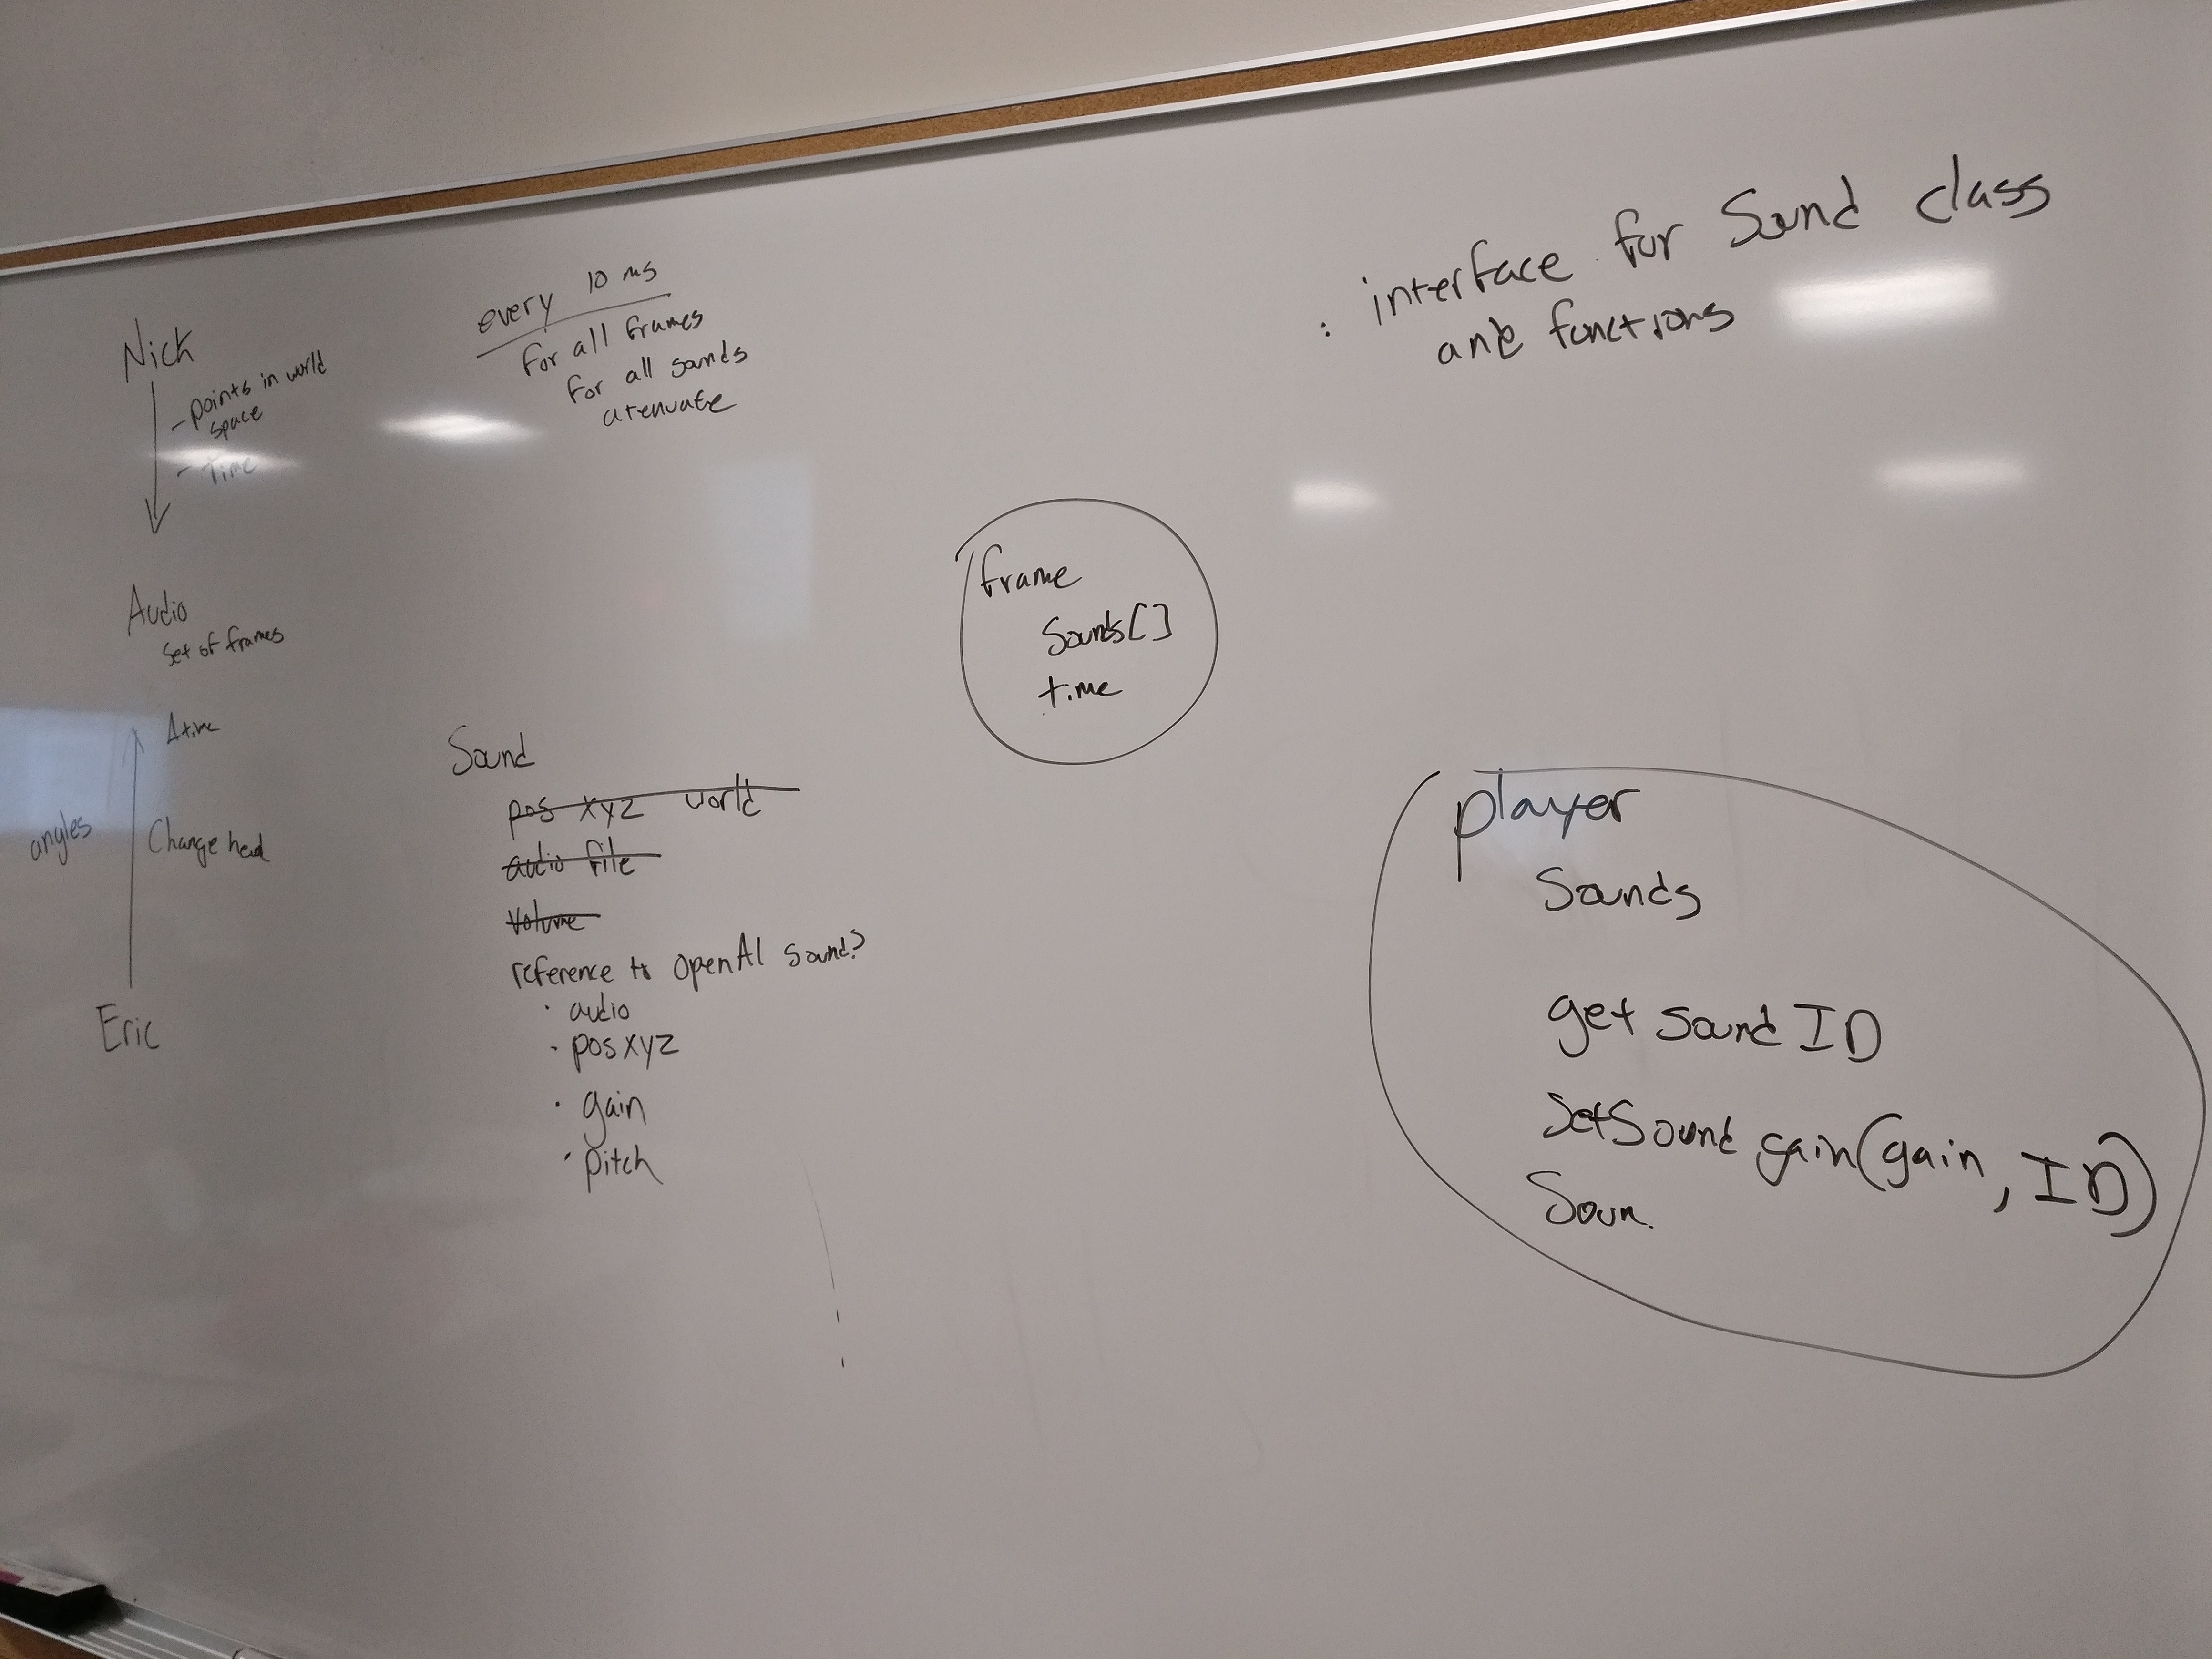 Nick
- points in world
space
- Time
Audio
Set of frames
Δtime
angles
Change head
Eric
every 10 ms
for all frames
for all sounds
atenuate
Sound
pos xyz world
audio file
volume
reference to OpenAl Sound?
· audio
· pos xyz
· gain
· pitch
frame
Sounds[]
time
: interface for Sound class
and functions
player
Sounds
get sound ID
SetSound gain(gain, ID)
Soun.